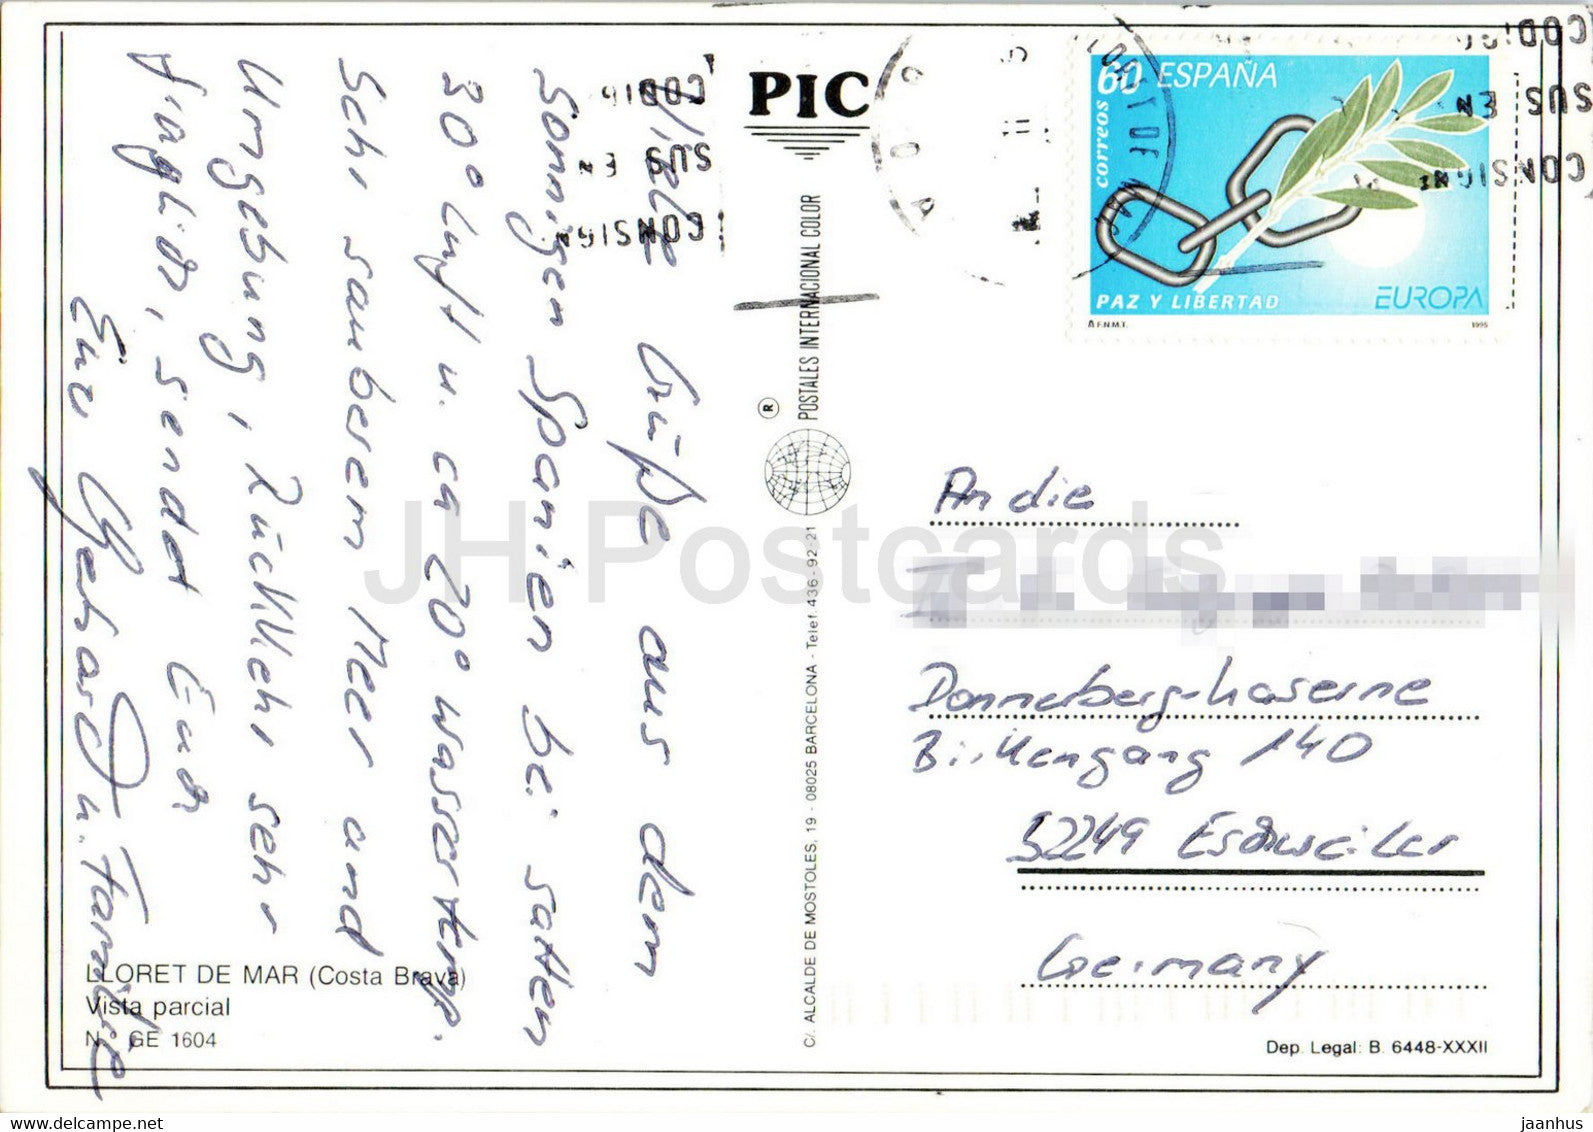 Viele Grüße aus dem
Sonnigen Spanien bei satten
30° Luft u. ca 20° Wassertemp.
Sehr sauberem Meer und
Umgebung, Rückkehr sehr
fraglich, sendet Euch
Euer Gerhard u. Familie
LLORET DE MAR (Costa Brava)
Vista parcial
N.º GE 1604
PIC
POSTALES INTERNACIONAL COLOR
R
C/. ALCALDE DE MOSTOLES, 19 - 08025 BARCELONA - Telef. 436-92 21
CODIGO
SUS EN
CONSIGN
60 ESPAÑA
correos
PAZ Y LIBERTAD
EUROPA
F.N.M.T.
1995
CODIGO
SUS EN
CONSIGN
An die
Donnerberg-Kaserne
Birkengang 140
52249 Eschweiler
Germany
Dep. Legal: B. 6448-XXXII
JH Postcards
www.delcampe.net
jaanhus